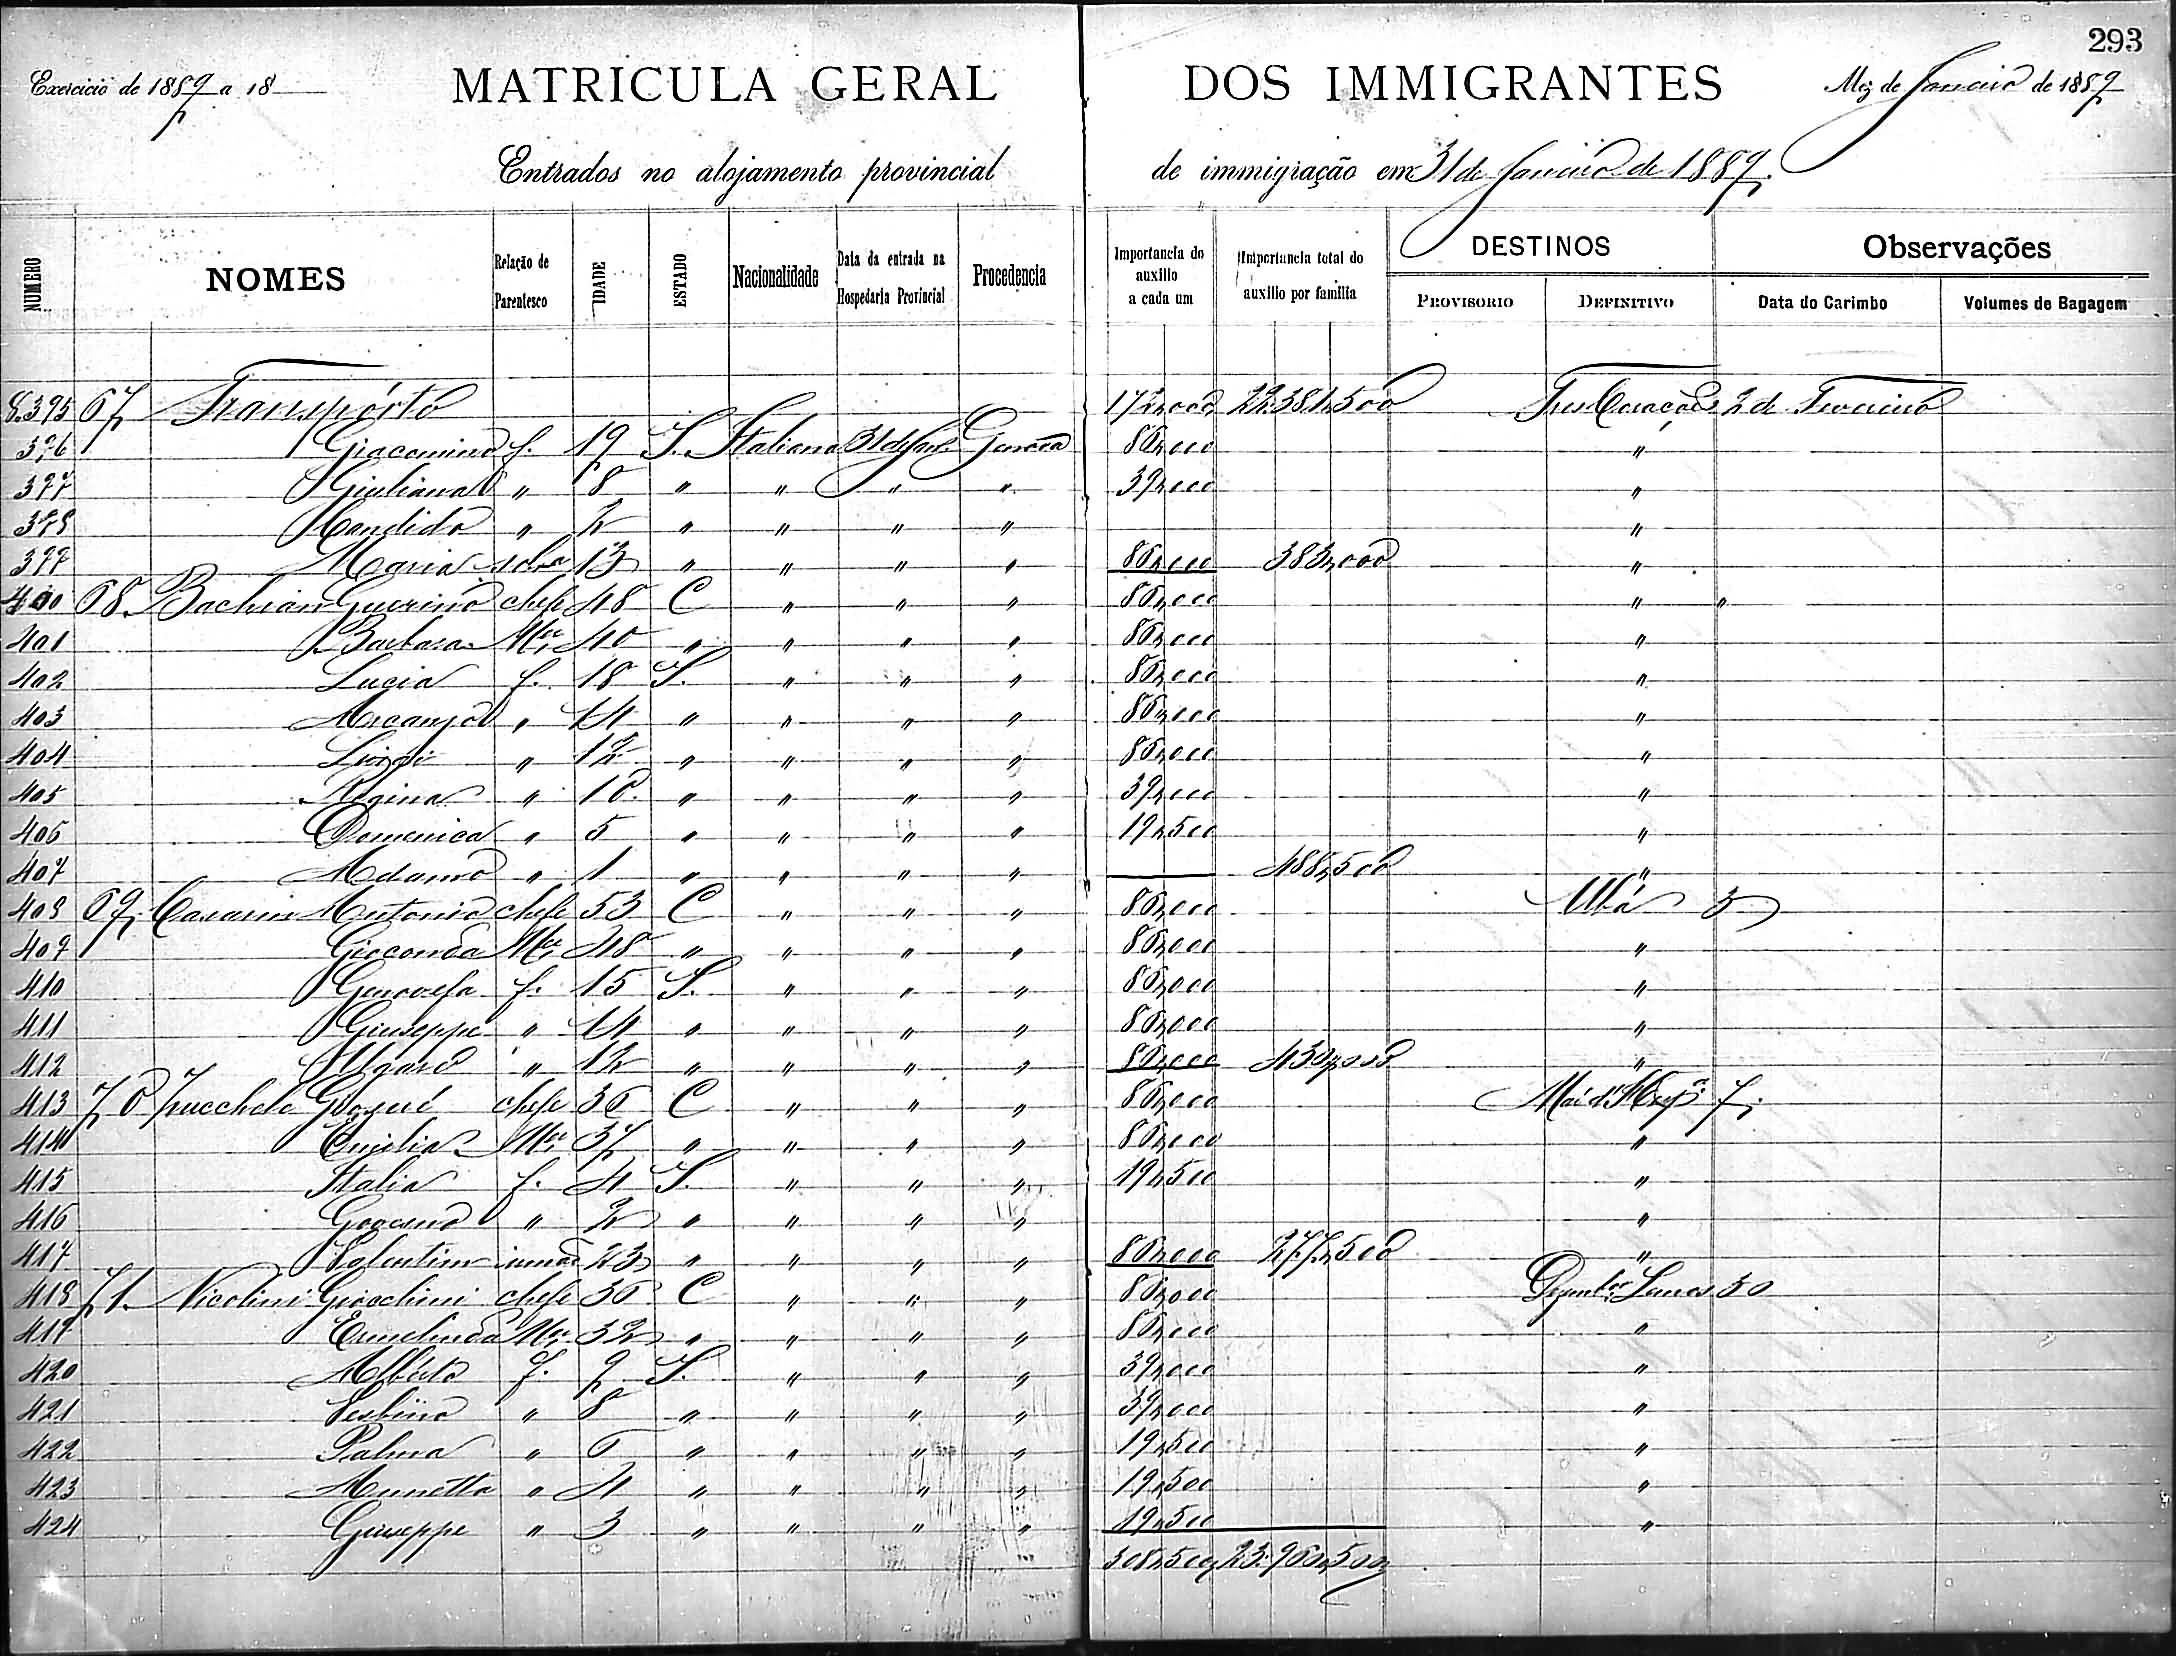 293
Exercicio de 1889 a 18
MATRICULA GERAL DOS IMMIGRANTES
Mez de Janeiro de 1889
Entrados no alojamento provincial de immigração em 31 de Janeiro de 1889.
NUMERO NOMES Relação de Parentesco IDADE ESTADO Nacionalidade Data da entrada na Hospedaria Provincial Procedencia Importancia do auxilio a cada um Importancia total do auxilio por familia DESTINOS PROVISORIO DEFINITIVO Observações Data do Carimbo Volumes de Bagagem
8.395 67 Transporto 172,000 22:381,500 Tres Corações 2 de Fevereiro
396 Giacomino f. 19 S. Italiana 31 de Jan. Genova 86,000 "
397 Giuliana " 8 " " " " 39,000 "
398 Candido " 2 " " " " "
399 Maria 13 " " " " 86,000 383,000 "
400 68 Guerino chefe 48 C " " " 86,000 " "
401 Barbara Mer 40 " " " " 86,000 "
402 Lucia f. 18 S. " " " 86,000 "
403 Arcangelo " 14 " " " " 86,000 "
404 Luigi " 12 " " " " 86,000 "
405 Regina " 10 " " " " 39,000 "
406 Domenica " 5 " " " " 19,500 "
407 Adamo " 1 " " " " 488,500 "
408 69 Cavarin Antonio chefe 53 C " " " 86,000 Ubá 3
409 Gioconda Mer 48 " " " " 86,000 "
410 Genovefa f. 15 S. " " " 86,000 "
411 Giuseppe " 14 " " " " 86,000 "
412 " 12 " " " " 86,000 430,000 "
413 70 Zucchele Giosué chefe 36 C " " " 86,000 7
414 Emilia Mer 37 " " " " 86,000 "
415 Italia f. 4 S. " " " 19,500 "
416 " 2 " " " " "
417 Valentim irmão 23 " " " " 86,000 277,500 "
418 71 Nicolini Giocchini chefe 36 C " " " 86,000 30
419 Ermelinda Mer 32 " " " " 86,000 "
420 Alberto f. 9 S. " " " 39,000 "
421 " 8 " " " " 39,000 "
422 Palma " 6 " " " " 19,500 "
423 Annetta " 4 " " " " 19,500 "
424 Giuseppe " 3 " " " " 19,500 "
308,500 23:960,500